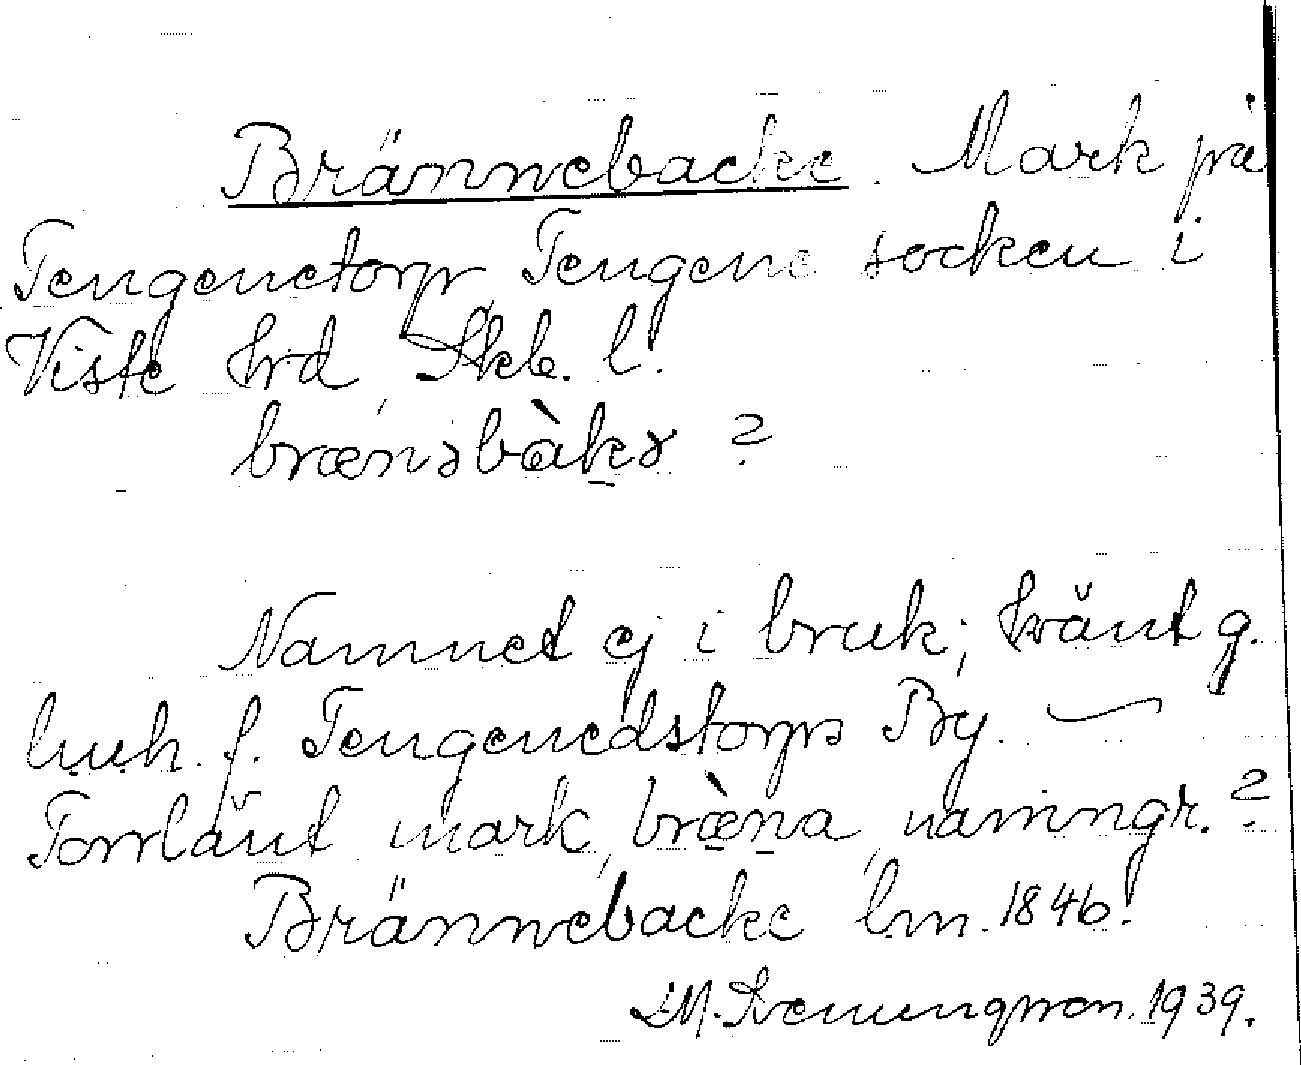 Brännebacke. Mark på
Tengenetorp, Tengene socken i
Viste hrd, Skb. l.
brænəbàkə ?
Namnet ej i bruk; hvänt g.
f. Tengenedstorps By.
Torrlänt mark, bræ̀na, namngr. ?
Brännebacke lm. 1846.
1939.